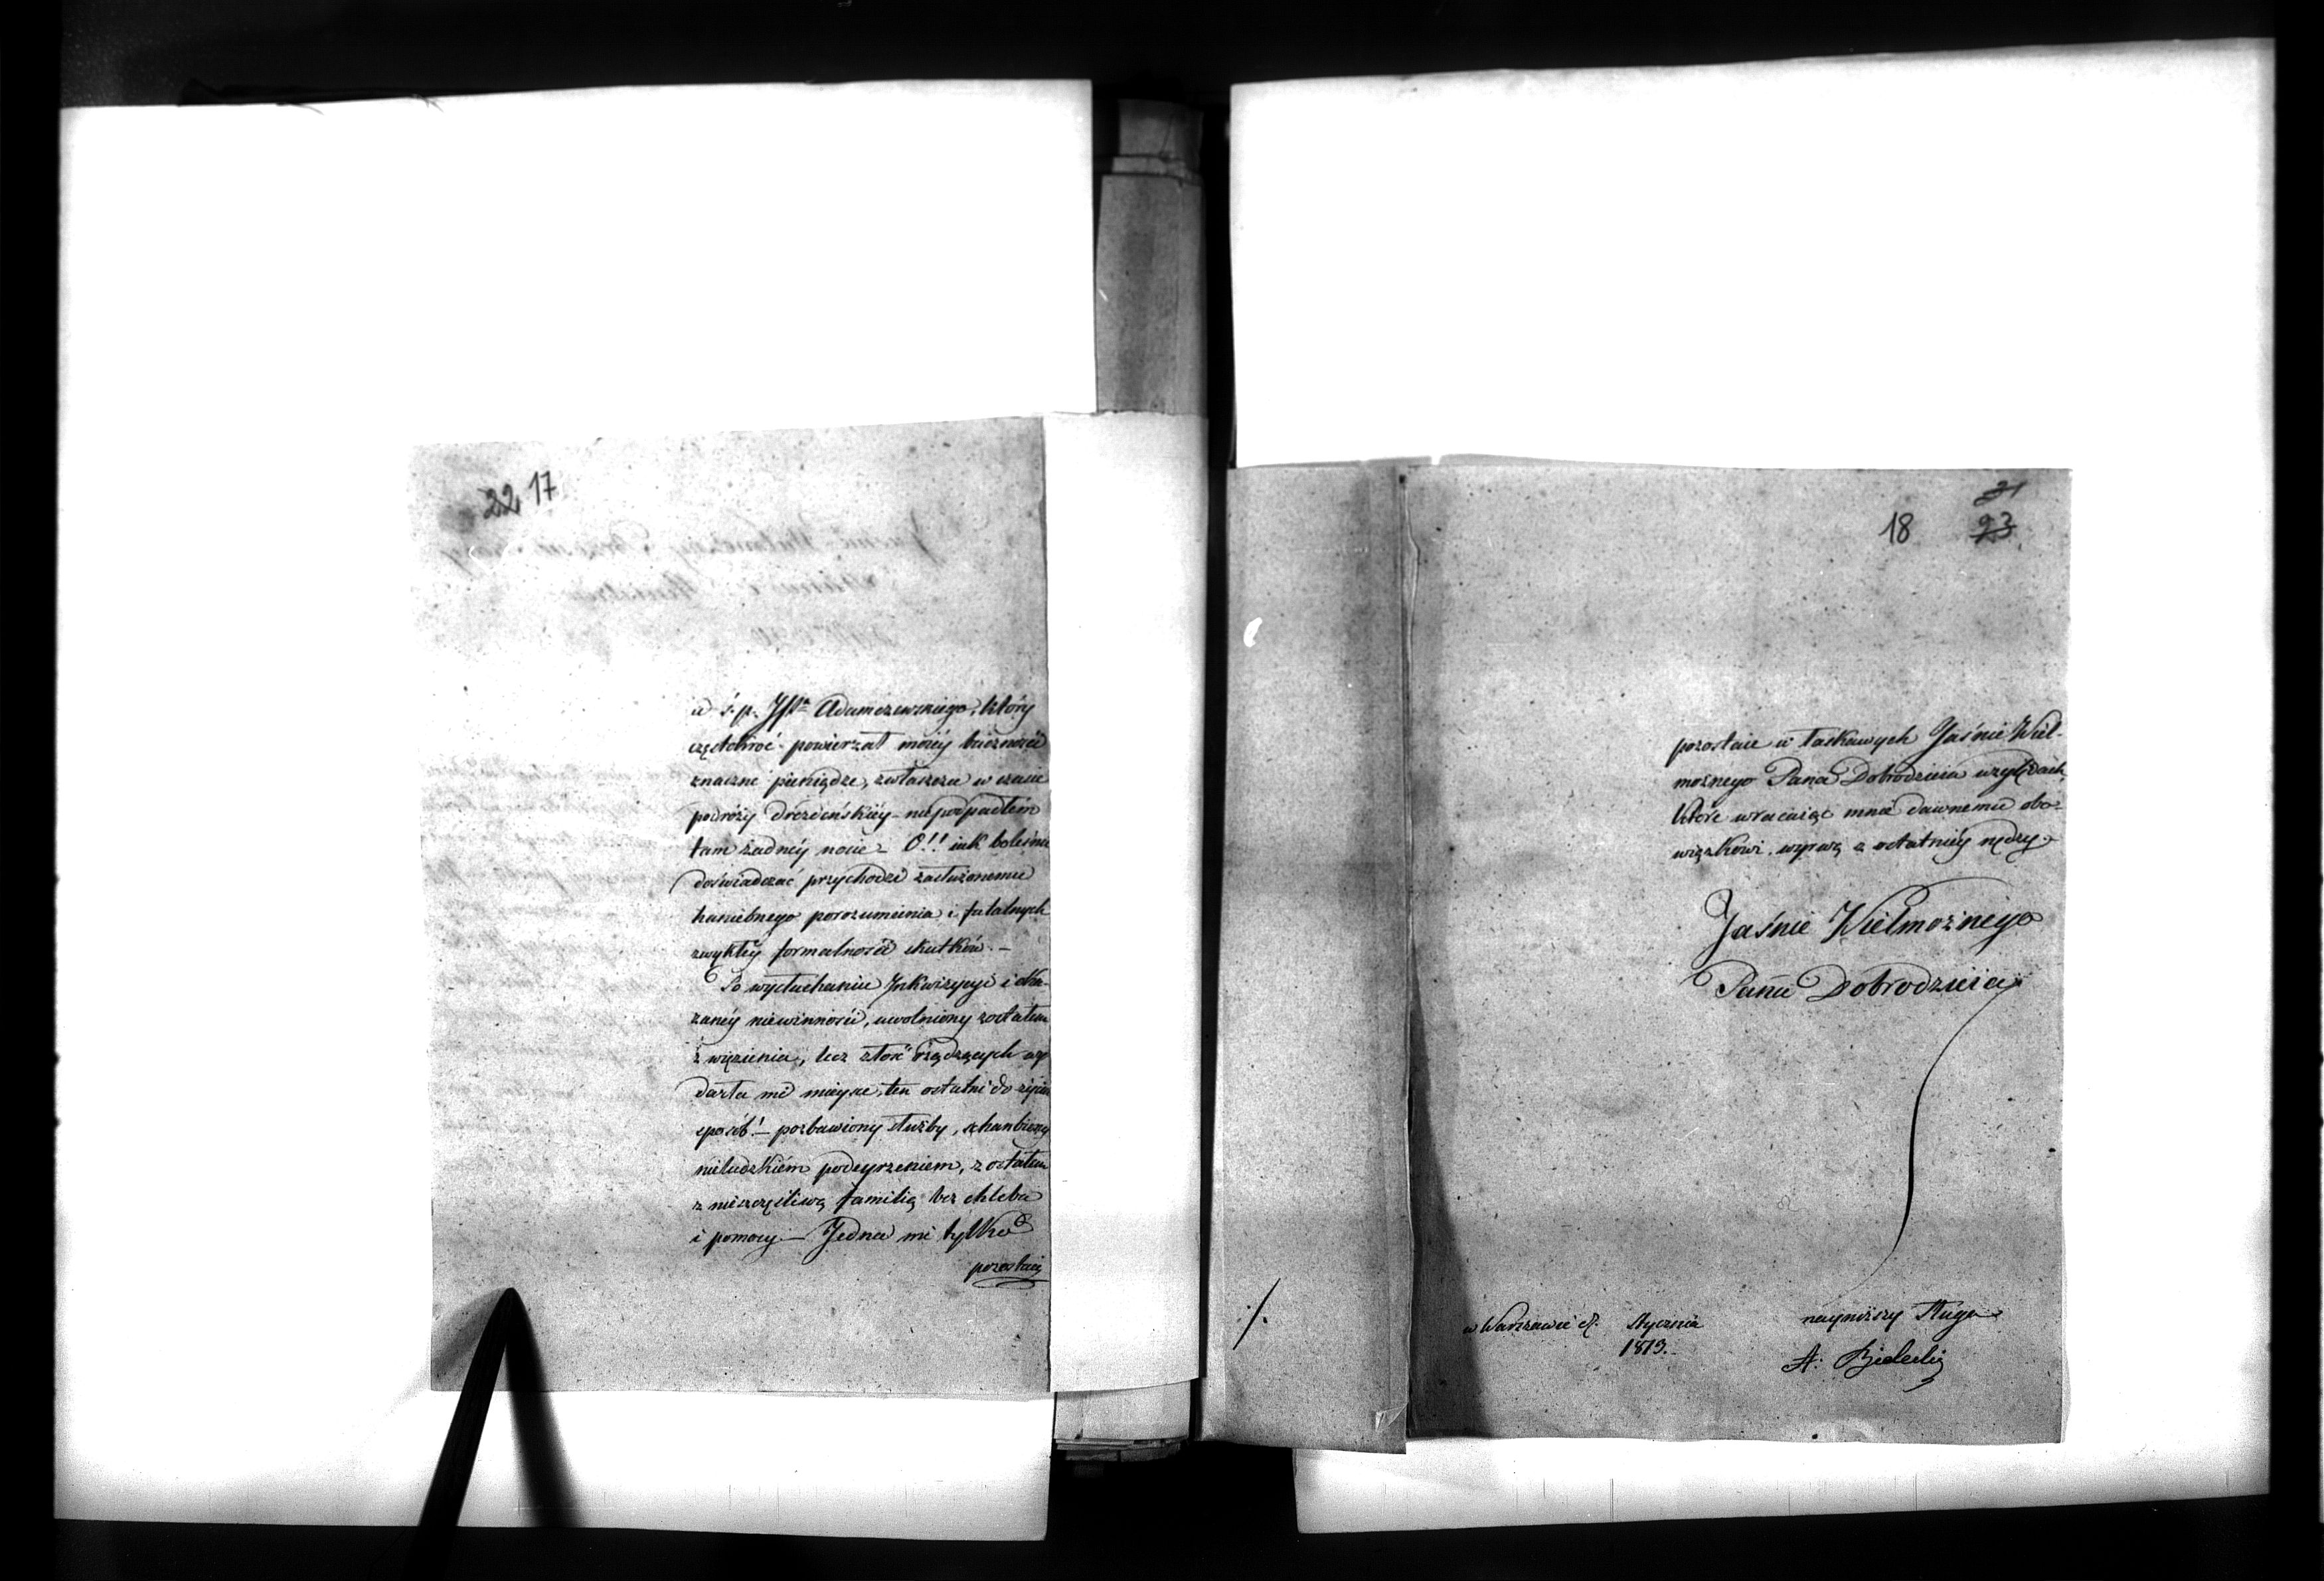 22 17
a ś. p. JPa Adamczewskiego, który
częstokroć powierzał moiéy baczności
znaczne pieniądze, zwłaszcza w czasie
podróży drezdeńskiéy – niepodpadłem
tam żadnéy nocie – O!! iak boleśnie
doświadczać przychodzi zasłużonemu
haniebnego porozumienia i fatalnych
zwykłéy formalności skutków. –
Po wysłuchaniu Inkwizycyi i oka-
zanéy niewinności, uwolniony zostałem
z więzienia, lecz złość rządzących wy
darła mi mieysce, ten ostatni do życia
sposób! – pozbawiony służby, zhanbiony
nieludzkiém podeyrzeniem, zostałem
z nieszczęśliwą familią bez chleba
i pomocy – Jedna mi tylko
pozostaie
21
18 23
pozostaie w łaskawych Jaśnie Wiel-
możnego Pana Dobrodzieia względach,
które wracaiąc mnie dawnemu obo-
wiązkowi, wyrwą z ostatniéy nędzy
Jaśnie Wielmożnego
Pana Dobrodzieia
./.
w Warszawie d. Stycznia
1813.
nayniższy Sługa
A. Bielecki